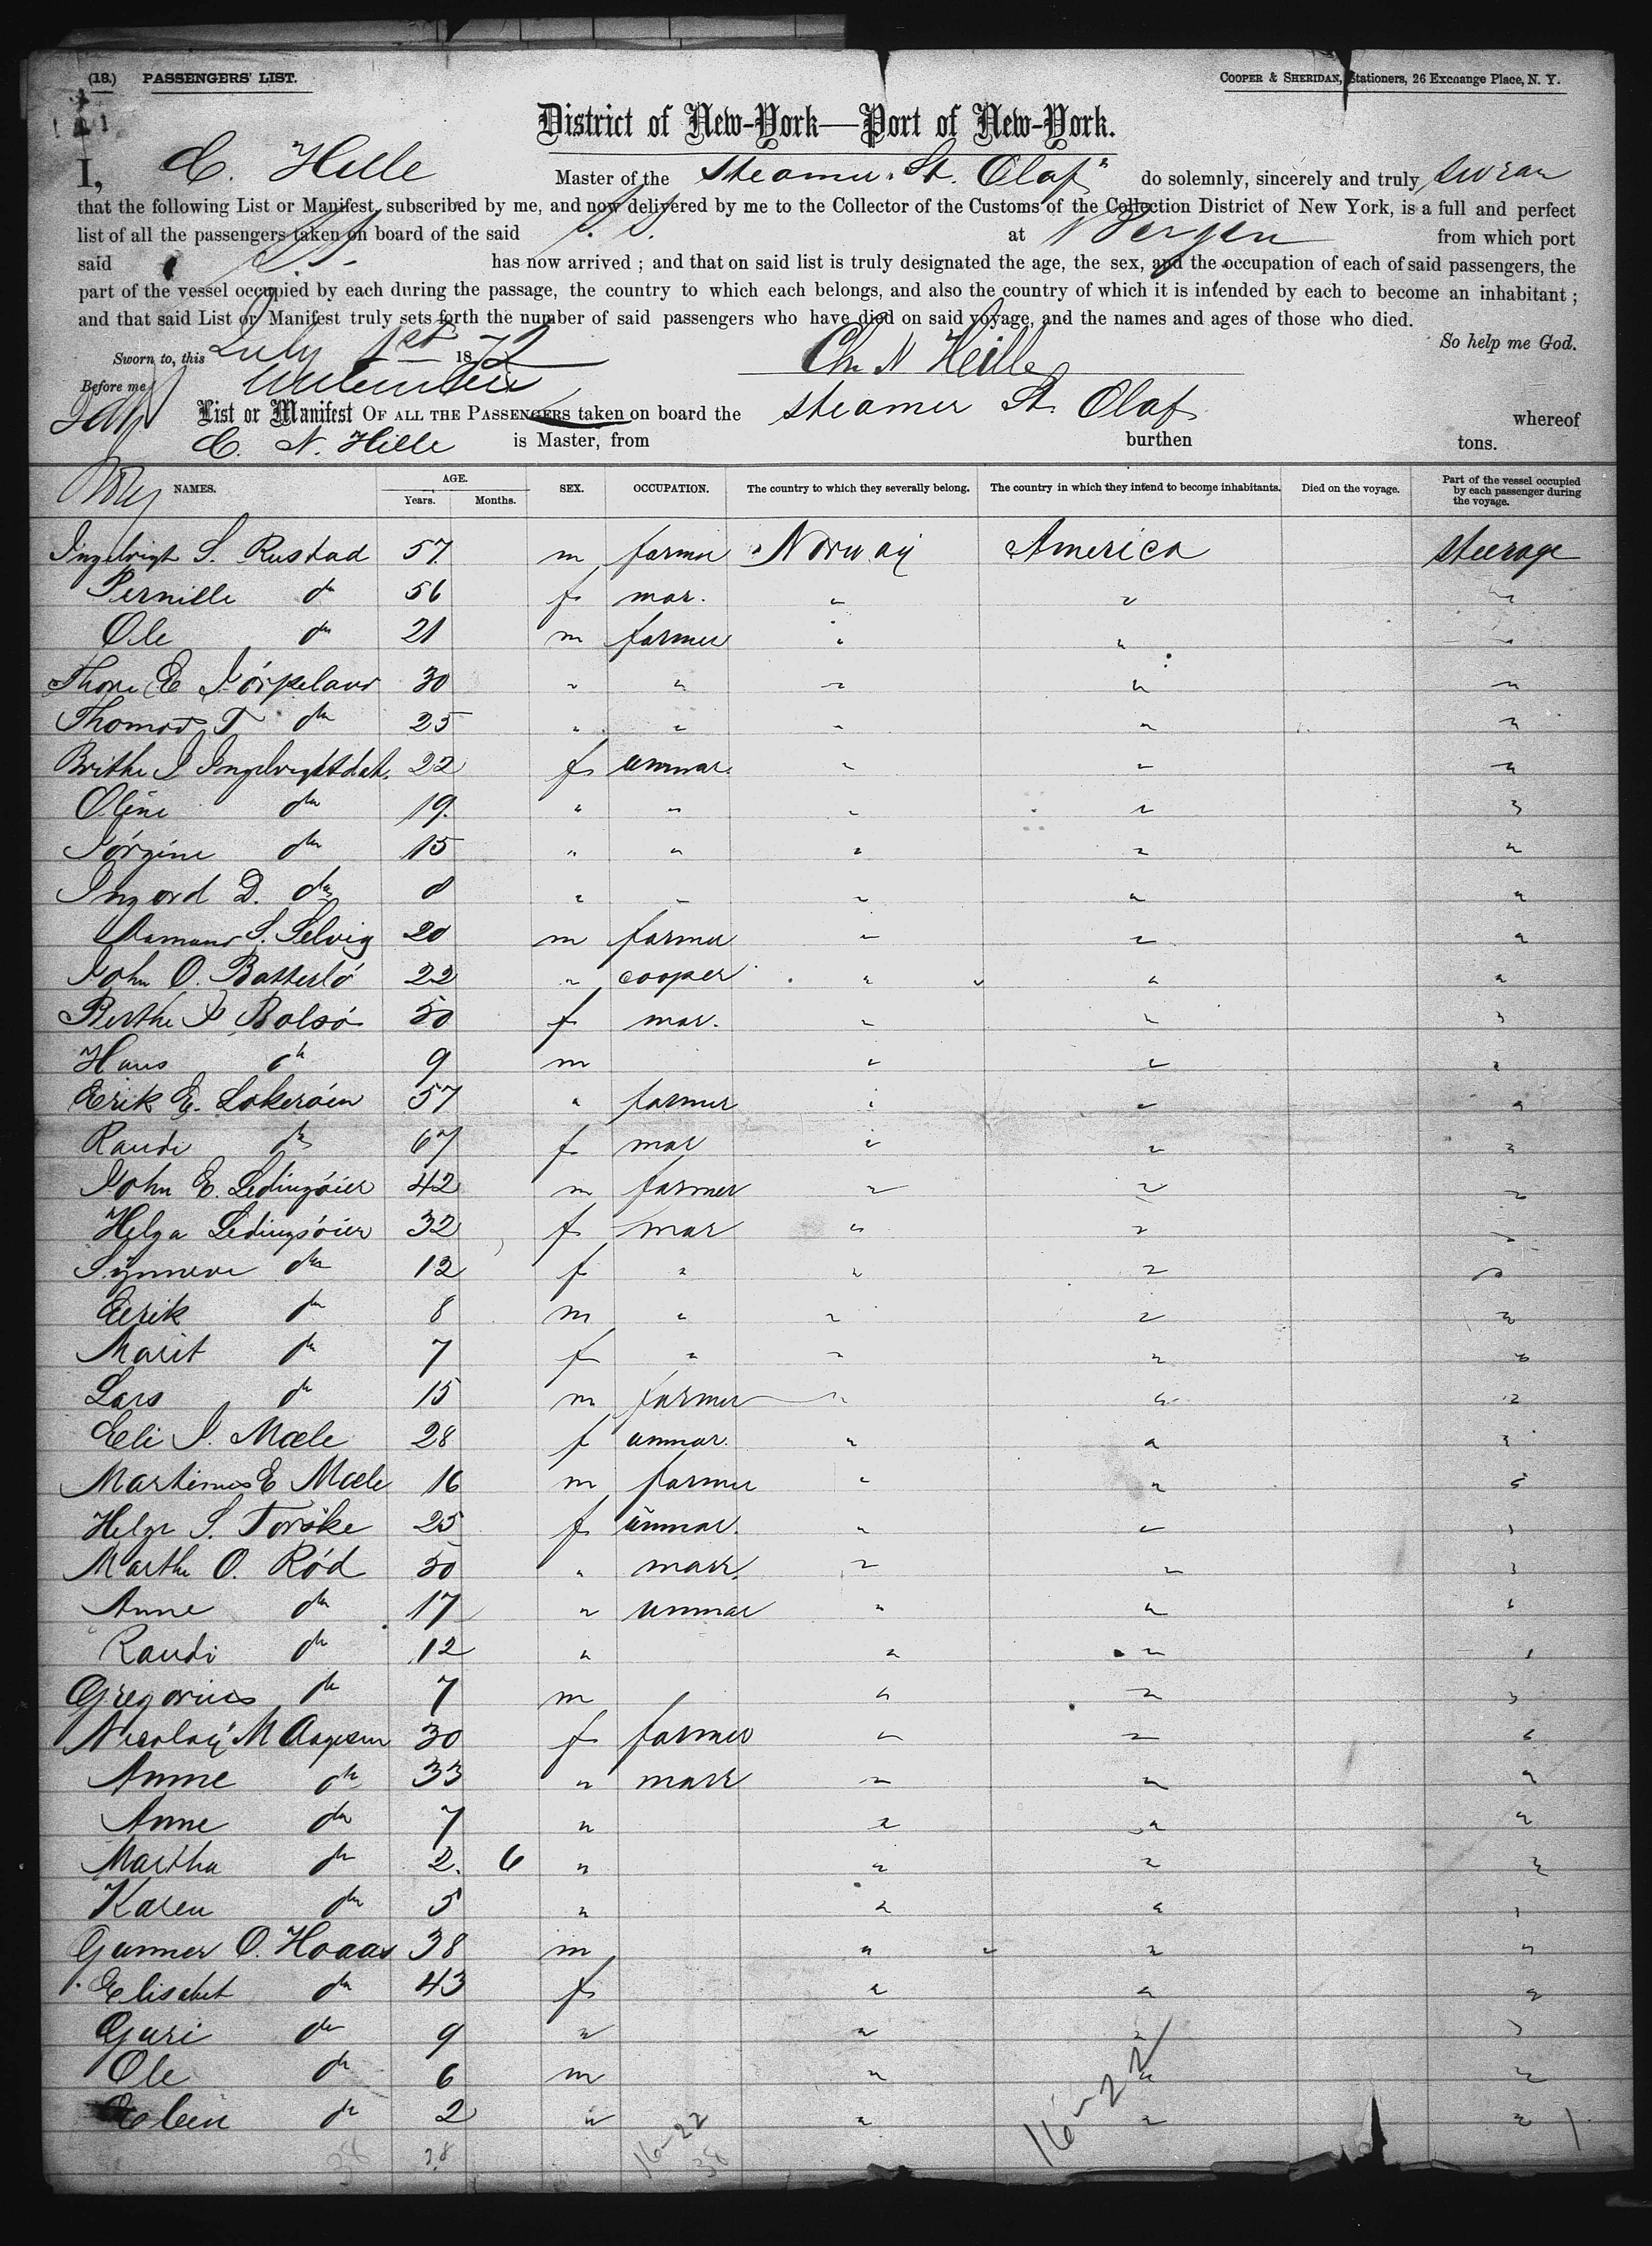 (18.) PASSENGERS' LIST. COOPER & SHERIDAN, Stationers, 26 Exchange Place, N. Y.
District of New-York—Port of New-York.
I, C. Hille Master of the Steamer "St. Olaf" do solemnly, sincerely and truly swear
that the following List or Manifest, subscribed by me, and now delivered by me to the Collector of the Customs of the Collection District of New York, is a full and perfect
list of all the passengers taken on board of the said S.S. at Bergen from which port
said S.S. has now arrived ; and that on said list is truly designated the age, the sex, and the occupation of each of said passengers, the
part of the vessel occupied by each during the passage, the country to which each belongs, and also the country of which it is intended by each to become an inhabitant ;
and that said List or Manifest truly sets forth the number of said passengers who have died on said voyage, and the names and ages of those who died.
So help me God.
Sworn to, this July 1st 1872 Ch. N Hille
Before me
List or Manifest OF ALL THE PASSENGERS taken on board the steamer St. Olaf whereof
C. N. Hille is Master, from burthen tons.
NAMES. AGE. Years. Months. SEX. OCCUPATION. The country to which they severally belong. The country in which they intend to become inhabitants. Died on the voyage. Part of the vessel occupied by each passenger during the voyage.
Ingebrigt S. Rustad 57 m farmer Norway America steerage
Pernille do 56 f mar. " " "
Ole do 21 m farmer " " "
Thore E 30 " " " " "
Thomas T do 25 " " " " "
Brithe I Ingebrigtsdat. 22 f unmar. " " "
Oline do 19. " " " " "
Jörgine do 15 " " " " "
Ingord D. do 8 " " " " "
Aamund S. Selvig 20 m farmer " " "
John O. Batterlö 22 " cooper " " "
Berthe P Bolsö 50 f mar. " " "
Hans do 9 m " " "
Erik E. Lokeröien 57 " farmer " " "
Randi do 67 f mar " " "
John E. Ledingsöier 42 m farmer " " "
Helga Ledingsöier 32 f mar " " "
Synneve do 12 f " " " "
Eerik do 8 m " " " "
Marit do 7 f " " " "
Lars do 15 m farmer " " "
Eeli I. Mæle 28 f unmar. " " "
Martinus E Mæle 16 m farmer " " "
Helge S. Torske 25 f unmar. " " "
Marthe O. Röd 50 " marr. " " "
Anne do 17 " unmar " " "
Randi do 12 " " " "
Gregorius do 7 m " " "
Nicolay M Aagesen 30 f farmer " " "
Anne do 33 " marr " " "
Anne do 7 " " " "
Martha do 2. 6 " " " "
Karen do 5 " " " "
Gunner O. Hoaas 38 m " " "
Elisabet do 43 f " " "
Guri do 9 " " " "
Ole do 6 m " " "
do 2 " " " "
38 38 16-22 38 16-22